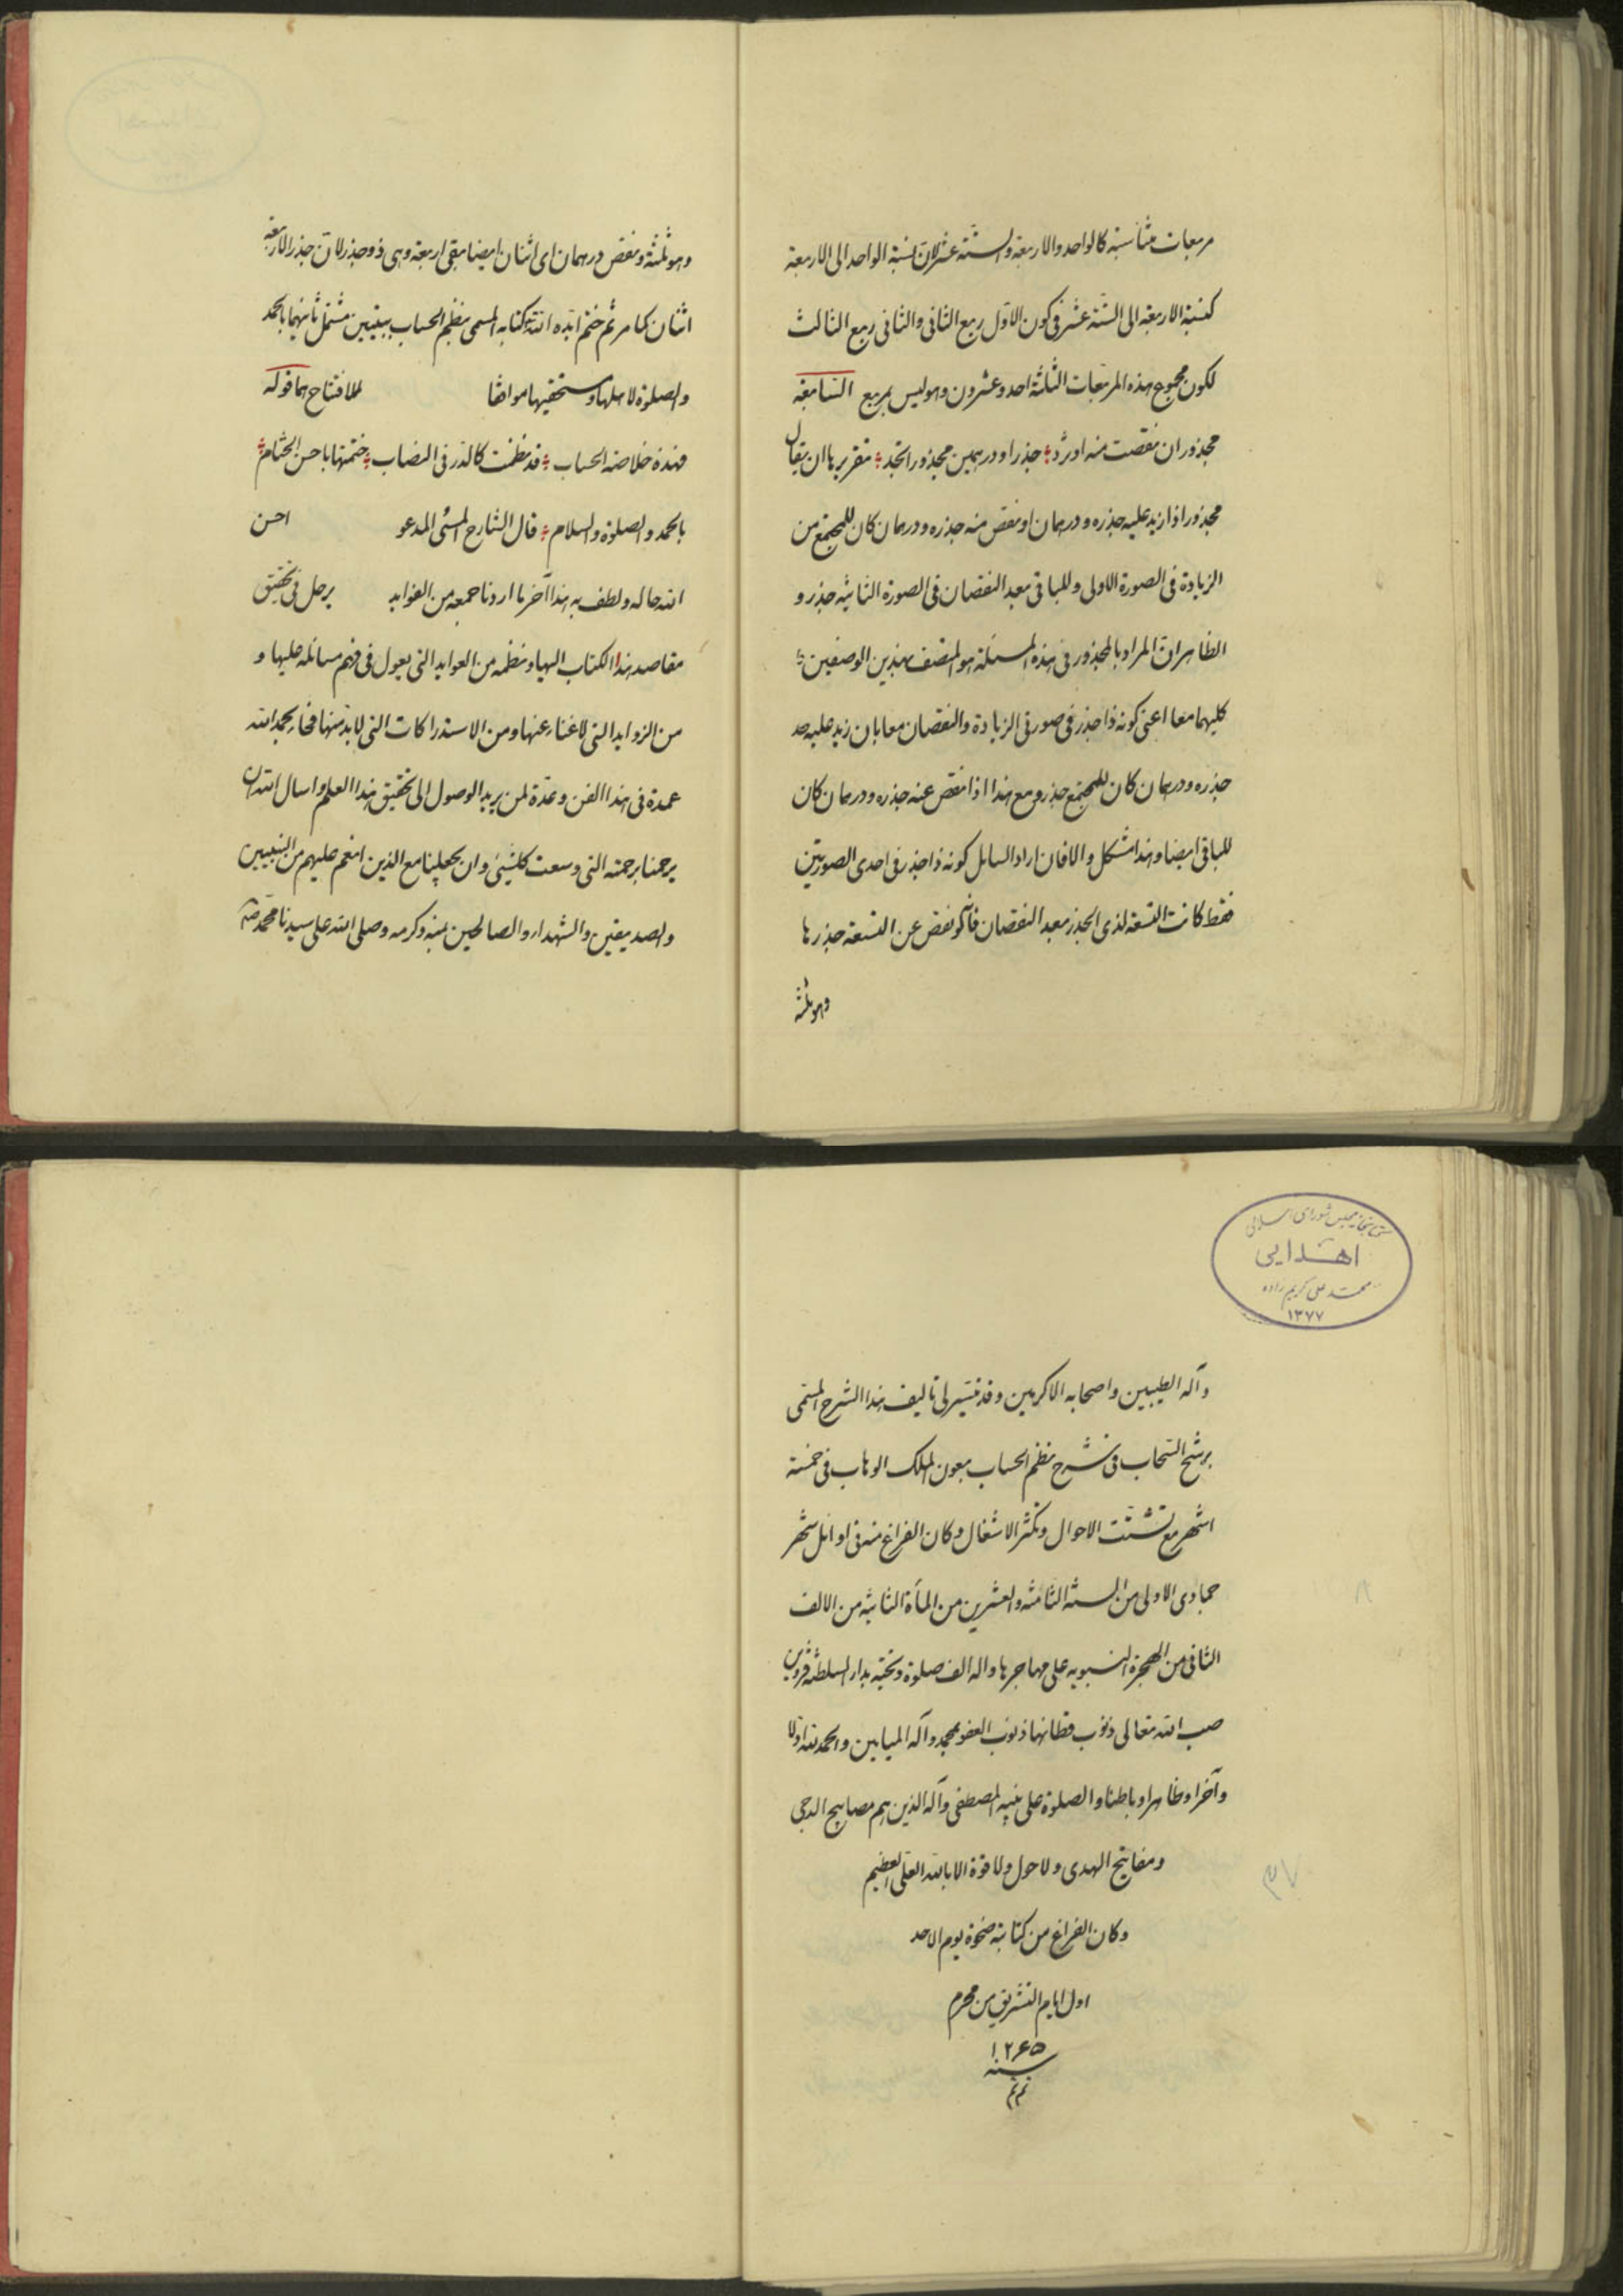 مربعات متناسبة كالواحد والاربعة والستة عشر لان نسبة الواحد الى الاربعة
كنسبة الاربعة الى الستة عشر فى كون الاول ربع الثانى والثانى ربع الثالث
لكون مجموع هذه المربعات الثلثة احد وعشرون وهو ليس بمربع السابعة
مجذور ان نقصت منه او تزد جذرا ودرهمين مجذورا تجد تقريرها ان يقال
مجذور اذا زيد عليه جذره ودرهمان او نقص منه جذره ودرهمان كان للمجتمع من
الزيادة فى الصورة الاولى وللباقى بعد النقصان فى الصورة الثانية جذر و
الظاهر ان المراد بالمجذور فى هذه المسئلة هو المتصف بهذين الوصفين
كليهما معا اعنى كونه ذا جذر فى صورتى الزيادة والنقصان معا بان زيد عليه
جذره ودرهمان كان للمجتمع جذر ومع هذا اذا نقص عنه جذره ودرهمان كان
للباقى ايضا وهذا مشكل والا فان اراد السايل كونه ذا جذر فى احدى الصورتين
فقط كانت التسعة لذى الجذر بعد النقصان فانه لو نقص عن التسعة جذرها
وهو ثلثة
وهو ثلثة ونقص درهمان اى اثنان ايضا بقى اربعة وهى ذو جذر لان جذر الاربعة
اثنان كما مر ثم ختم ايده الله كتابه المسمى بنظم الحساب ببيتين مشتمل ثانيهما بالحمد
والصلوة لاهلها ومستحقيها موافقا للافتتاح بهما قوله
فهذه خلاصة الحساب قد نظمت كالدر فى النصاب ختمتها باحسن الختام
بالحمد والصلوة والسلام قال الشارح المسئى المدعو احسن
الله حاله ولطف به هذا آخر ما اردنا جمعه من الفوايد فى تحقيق
مقاصد هذا الكتاب اليها ونظمه من العوايد التى يعول فى فهم مسائله عليها و
من الزوايد التى لا غناء عنها ومن الاستدراكات التى لا بد منها فجاء بحمد الله
عمدة فى هذا الفن وعدة لمن يريد الوصول الى تحقيق هذا العلم واسال الله ان
يرحمنا برحمته التى وسعت كلشيئ وان يجعلنا مع الذين انعم عليهم من النبيين
والصديقين والشهداء والصالحين بمنه وكرمه وصلى الله على سيدنا محمد
كتابخانه مجلس شوراى اسلامى
اهدایی
محمد على كريم زاده
١٣٧٧
وآله الطيبين واصحابه الاكرمين وقد تيسر لى تاليف هذا الشرح المسمى
برشح السحاب فى شرح نظم الحساب بعون الملك الوهاب فى خمسة
اشهر مع تشتت الاحوال وتكثر الاشغال وكان الفراغ منه فى اوائل شهر
جمادى الاولى من السنة الثامنة والعشرين من المأة الثانية من الالف
الثانى من الهجرة النبويه على مهاجرها واله الف صلوة وتحية بدار السلطنة قزوين
صب الله تعالى ذنوب قطانها ذنوب العفو بمحمد وآله الميامين والحمد لله اولا
وآخرا وظاهرا وباطنا والصلوة على نبيه المصطفى وآله الذين هم مصابيح الدجى
ومفاتيح الهدى ولا حول ولا قوة الا بالله العلى العظيم
وكان الفراغ من كتابته ضحوة يوم الاحد
اول ايام التشريق من محرم
١٢۶۵
سنه